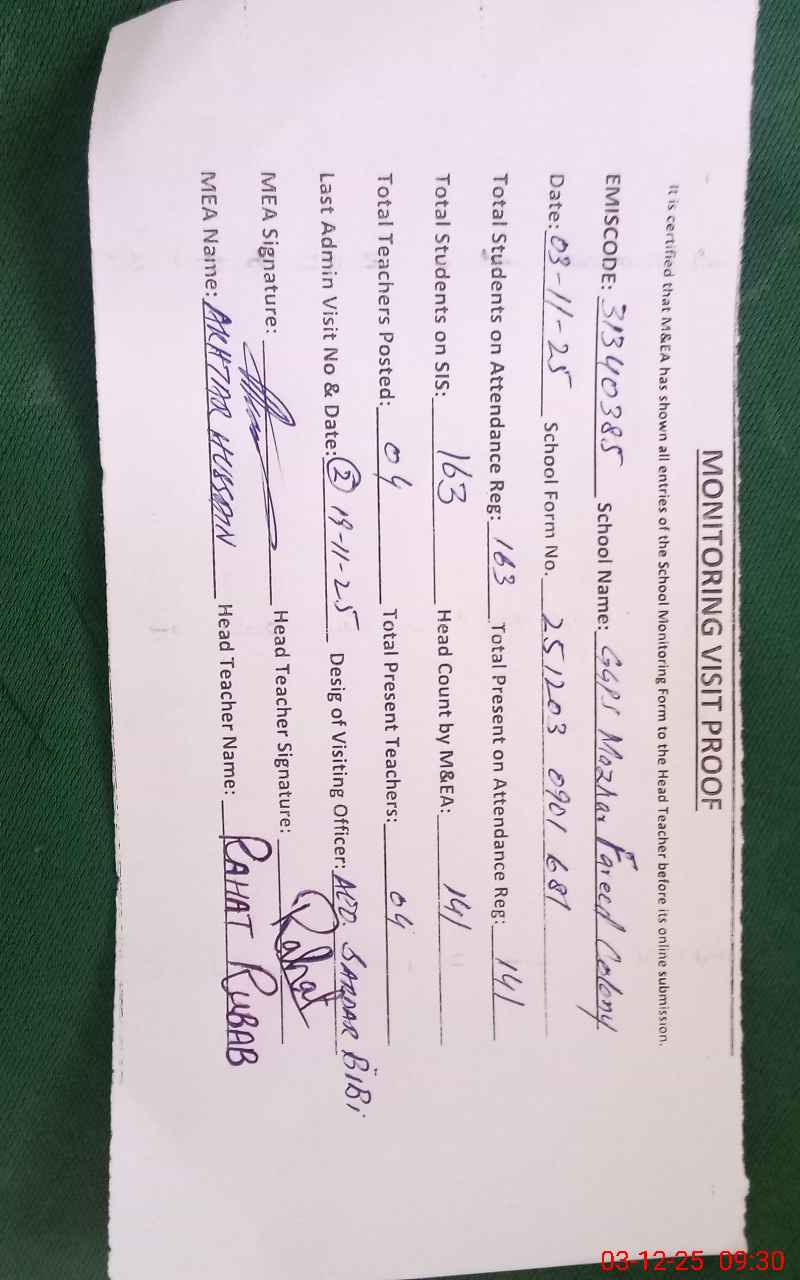 MONITORING VISIT PROOF
It is certified that M&EA has shown all entries of the School Monitoring Form to the Head Teacher before its online submission.
EMISCODE: 31340385 School Name: GGPS Mazhar Fareed Colony
Date: 03-11-25 School Form No. 251203 0901 681
Total Students on Attendance Reg: 163 Total Present on Attendance Reg: 141
Total Students on SIS: 163 Head Count by M&EA: 141
Total Teachers Posted: 04 Total Present Teachers: 04
Last Admin Visit No & Date: 2 19-11-25 Desig of Visiting Officer: SARDAR BiBi
MEA Signature: Head Teacher Signature: Rahat
MEA Name: AKHTAR HUSSAIN Head Teacher Name: RAHAT RUBAB
03-12-25 09:30